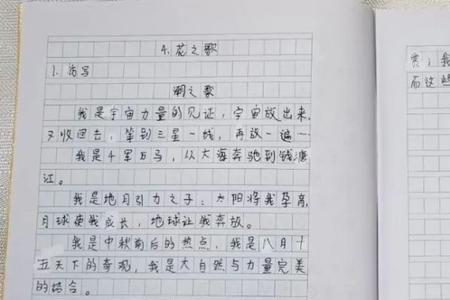 4.花之歌
1.仿写
潮之歌
我是宇宙力量的见证,宇宙放出来,
又收回去,等到三星一线,再放一遍…
我是千军万马,从大海奔驰到钱塘
江。
我是地月引力之子:太阳将我孕育,
月球使我成长,地球让我奔放。
我是中秋前后的热点,我是八月十
五天下的奇观,我是大自然与力量完美
的结合。
亮;我
而这些